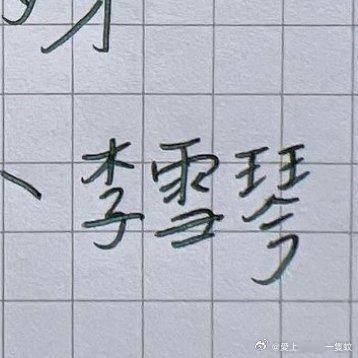 李雪琴
@愛上 一隻蚊